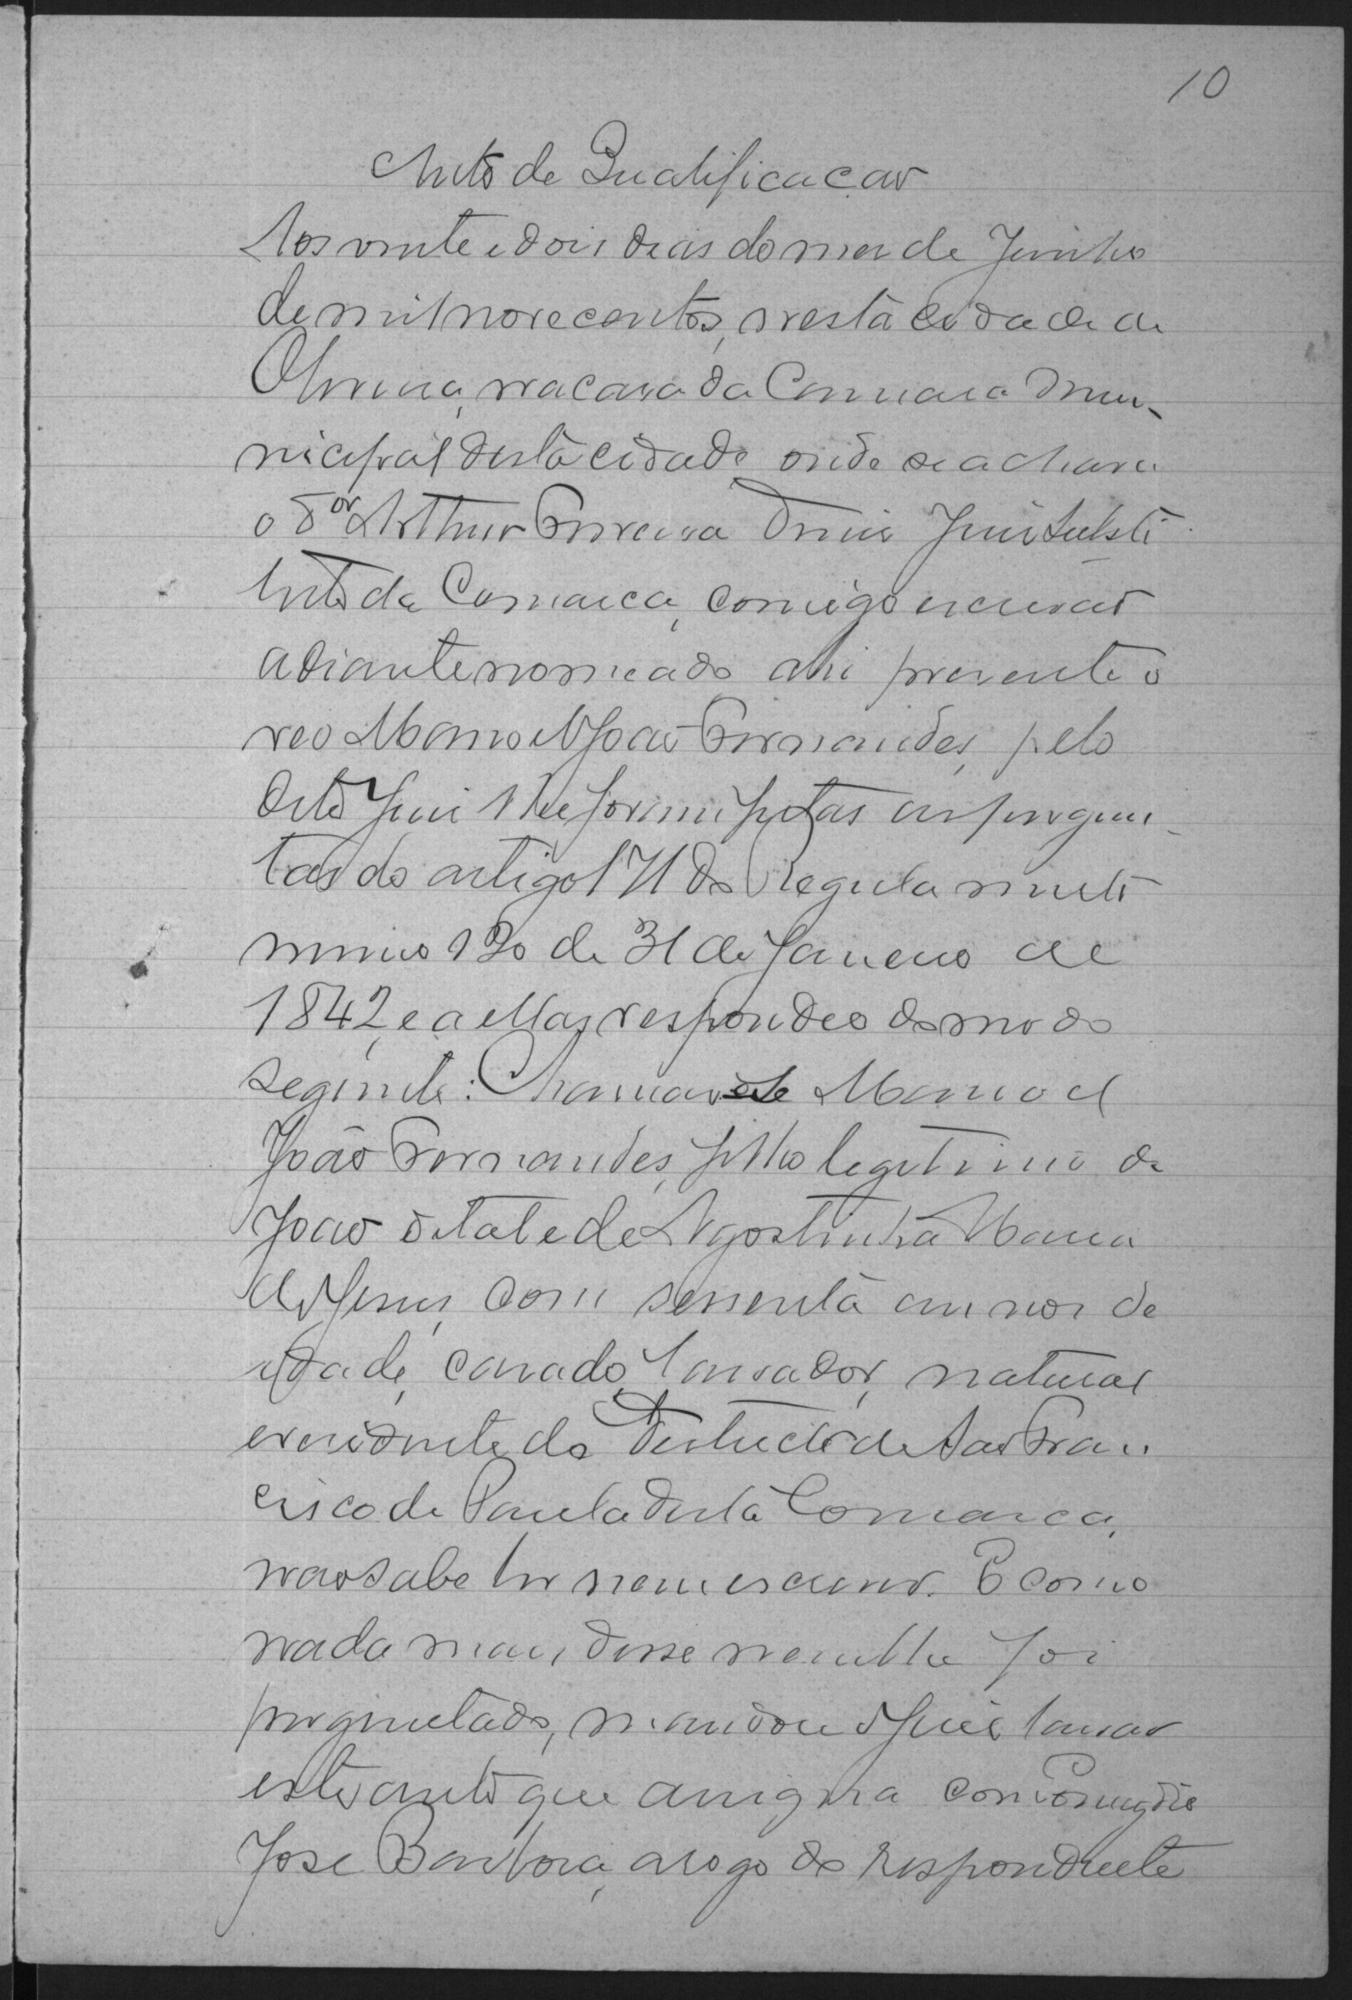 10
Auto de Qualificacao
Aos vinte e dois dias do mez de Junho
de mil novecentos, nesta cidade de
Oliveira, na casa da Camara Mu-
nicipal desta cidade onde se achava
o Dor Arthur Diniz Juiz Substi
tuto da Comarca, comigo escrivão
adiante nomeado ahi presente o
reo Manoel João Fernandes, pelo
dito Juiz lhe forão feitas as pergun-
tas do artigo 171 do Regulamento
numero 120 de 31 de Janeiro de
1842, e a ellas respondeo do modo
seginte: Chamar-se Manoel
João Fernandes, filho legitimo de
João de tal e de Agostinha Maria
de Jesus, com sessenta annos de
idade, casado, lavrador, natural
e residente do Districto de Sao Fran
cisco de Paula desta Comarca,
nao sabe ler nem escrever. E como
nada mais disse nem lhe foi
perguntado, mandou o Juiz lavrar
este auto que assigna com
Jose Barbosa, a rogo do respondente